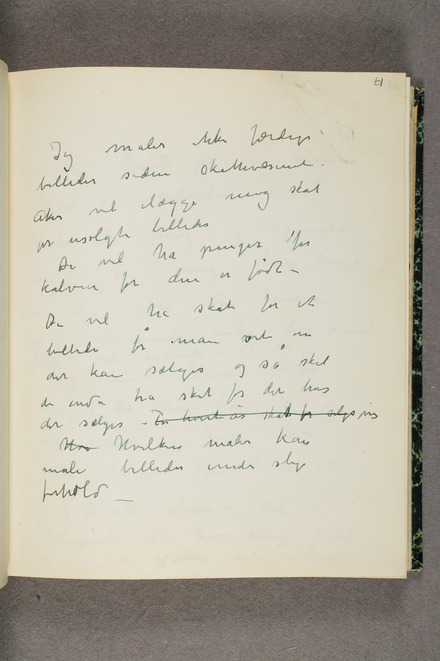 Jeg maler ikke færdige
billeder siden skattevæsenet
Aker vil ilægge mig skat
for usolgte billeder
De vil ha penger for
kalven før den er født –
De vil ha skat for et
billede før man vet om
det kan sælges og så skal
de enda ha skat for det hvis
det sælges –
Hvilken maler kan
male billeder under slige
forhold –